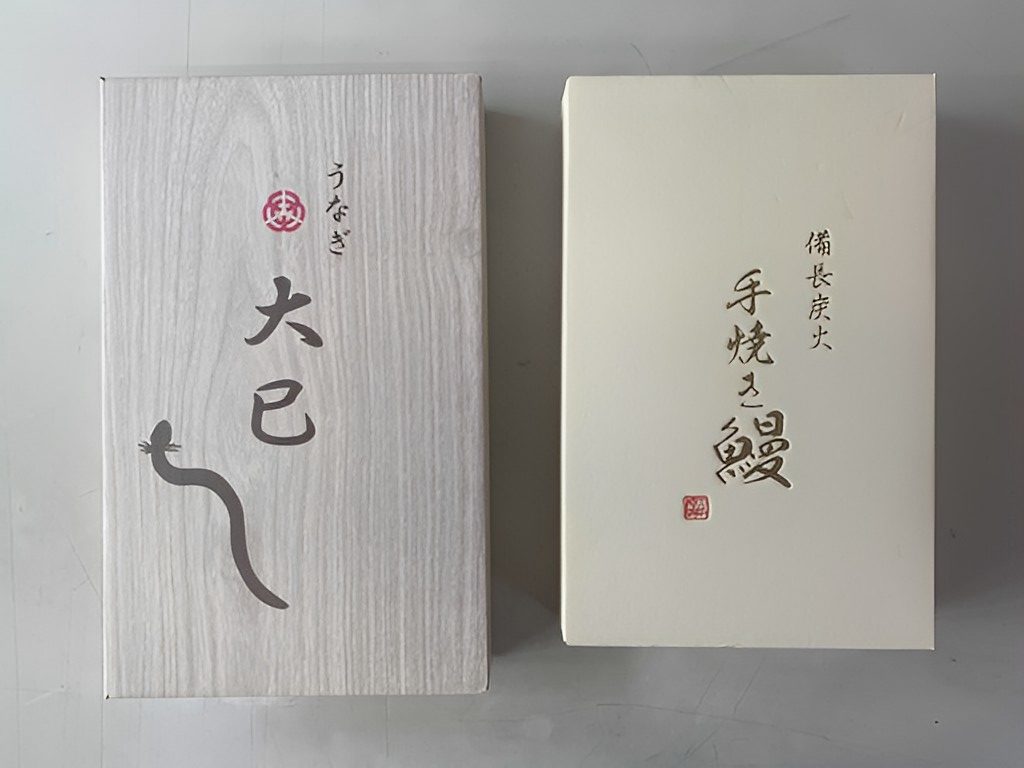 うなぎ
大巳
備長炭火
手焼き鰻